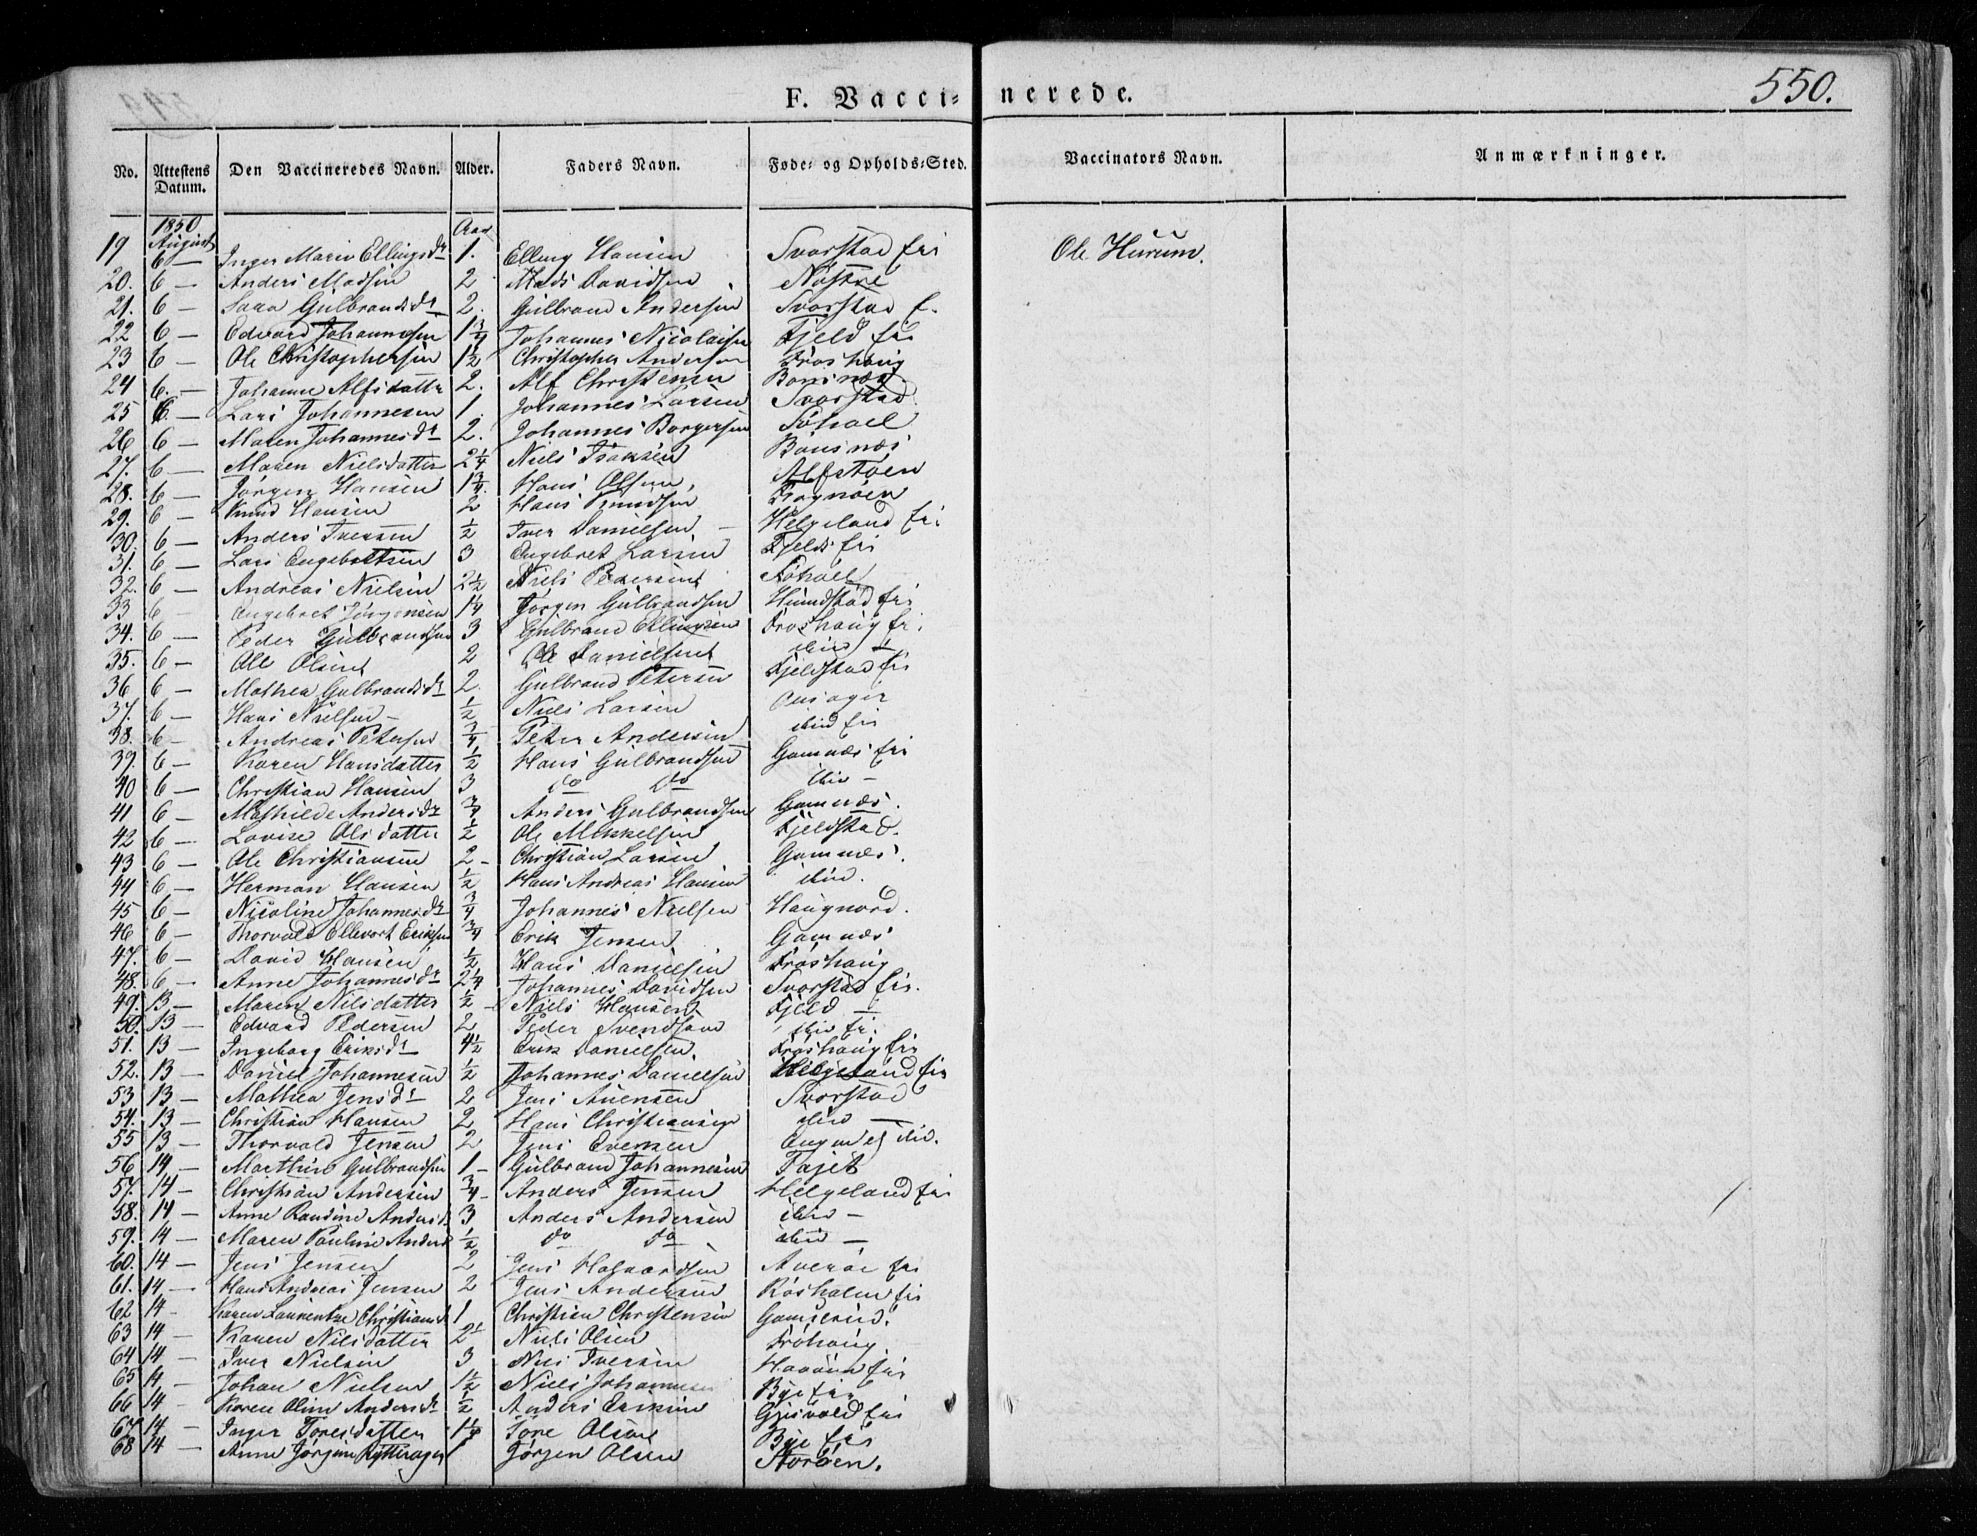 F. Vaccinerede.
550.
No. Attestens Datum. Den Vaccineredes Navn. Alder. Faders Navn. Føde- og Opholds-Sted. Vaccinators Navn. Anmærkninger.
1850 Aar
19 August 6 — Inger Marie Ellingsdr 1. Elling Hansen Svarstad fri Ole Hurum.
20. 6 — Anders Madsen 2 Mads Davidsen Nøstre
21. 6 — Gulbrandsdr 2. Gulbrand Andersen Svarstad f.
22 6 — Edvard Johannesen 1 3/4 Johannes Nicolaisen Fjeld fri
23 6 — Ole Christophersen 1 1/2 Christopher Andersen Frøshaug
24 6. — Johanne Alfsdatter 2. Alf Christensen Bønsnæs
25 6 — Lars Johannesen 1. Johannes Larsen Svarstad
26 6 — Maren Johannesdr 2. Johannes Borgersen Søhoel
27. 6 — Maren Nielsdatter 2 1/4 Niels Isaksen Bønsnæs
28. 6 — Jørgen Hansen 1 3/4. Hans Olsen,
29. 6 — Knud Hansen 2 Hans Knudsen Frognøen
30. 6 — Anders Iversen 1/2 Iver Danielsen — Helgeland fri
31. 6 — Lars Engebretsen 3 Engebret Larsen Fjeld fri
32. 6 — Andreas Nielsen 2 1/2 Niels Pedersen Søhoel
33 6 — Engebret Jørgensen 1 1/4 Jørgen Gulbrandsen Hundstad fri
34. 6 — Peder Gulbrandsen 3 Gulbrand Ellingsen Frøshaug fr.
35. 6 — Ole Olsen 2 Ole Danielsen ibid —
36 6 — Mathea Gulbrandsdr 2. Gulbrand Petersen Fjeldstad fri
37. 6 — Hans Nielsen — 1/2 Niels Larsen Onsager
38. 6 — Andreas Petersen 3/4 Peter Andersen ibid fri
39. 6 — Karen Hansdatter 1/2 Hans Gulbrandsen Gomnæs fri
40 6 — Christian Hansen 3 do do ibid —
41 6 — Mathilde Andersdr 3/4 Anders Gulbrandsen Gomnæs.
42 6 — Lovise Olsdatter 1/2 Ole Mikkelsen Fjeldstad.
43 6 — Ole Christiansen 2 — Christian Larsen Gomnæs.
44 6 — Herman Hansen 1/2 Hans Andreas Hansen ibid.
45 6 — Nicoline Johannesdr 3/4 Johannes Nielsen Haugnord.
46 6 — Thorvald Ellevart Eriksen 3/4 Erik Jensen Gomnæs
47. 6 — David Hansen 1/2 Hans Danielsen Frøshaug
48. 6 — Anne Johannesdr 2 1/4 Johannes Davidsen Svarstad fri.
49. 13 — Maren Nilsdatter 1/2 — Niels Hansen Fjeld —
50. 13 — Edvard Pedersen 2 Peder Svendsen ibid fr.
51. 13 — Ingeborg Eriksdr 4 1/2 Erik Danielsen. Frøshaug fri
52. 13 — Daniel Johannesen 1/2 Johannes Danielsen Helgeland fri
53 13 — Mathea Jensdr 2 Jens Svarstad
54. 13 — Christian Hansen 2 Hans Christiansen ibid —
55 13 — Thorvald Jensen 2 Jens Evensen
56 14, — Marthin Gulbrandsen 1 — Gulbrand Johannesen Tajet
57. 14 — Christian Andersen 3/4 — Anders Jensen Helgeland fri
58. 14 — Anne Randine Andersd. 3 Anders Andersen ibid —
59. 14 — Maren Pauline Andersd 1/2 do do ibid —
60. 14 — Jens Jensen 2 Jens Averøe fri
61. 14, — Hans Andreas Jensen 2 Jens Andersen Røsholm fri
62 14 — Karen Laurentze Christiansd. 1 Christian Christensen Gomserud.
63 14 — Karen Nilsdatter Niels Olsen Frøhaug.
64 14 — Iver Nielsen 3 Niels Iversen
65 14 — Johan Nielsen 1 1/2 Niels Johannesen Bye fri
66 14 — Karen Oline Andersdr 1/2 Anders Eriksen Gjesvold fri
67 14 — Inger Toresdatter 1 1/4 Tore Olsen Bye fri
68 14 — Anne Jørgine Rytterager 1 Jørgen Olsen Storøen.